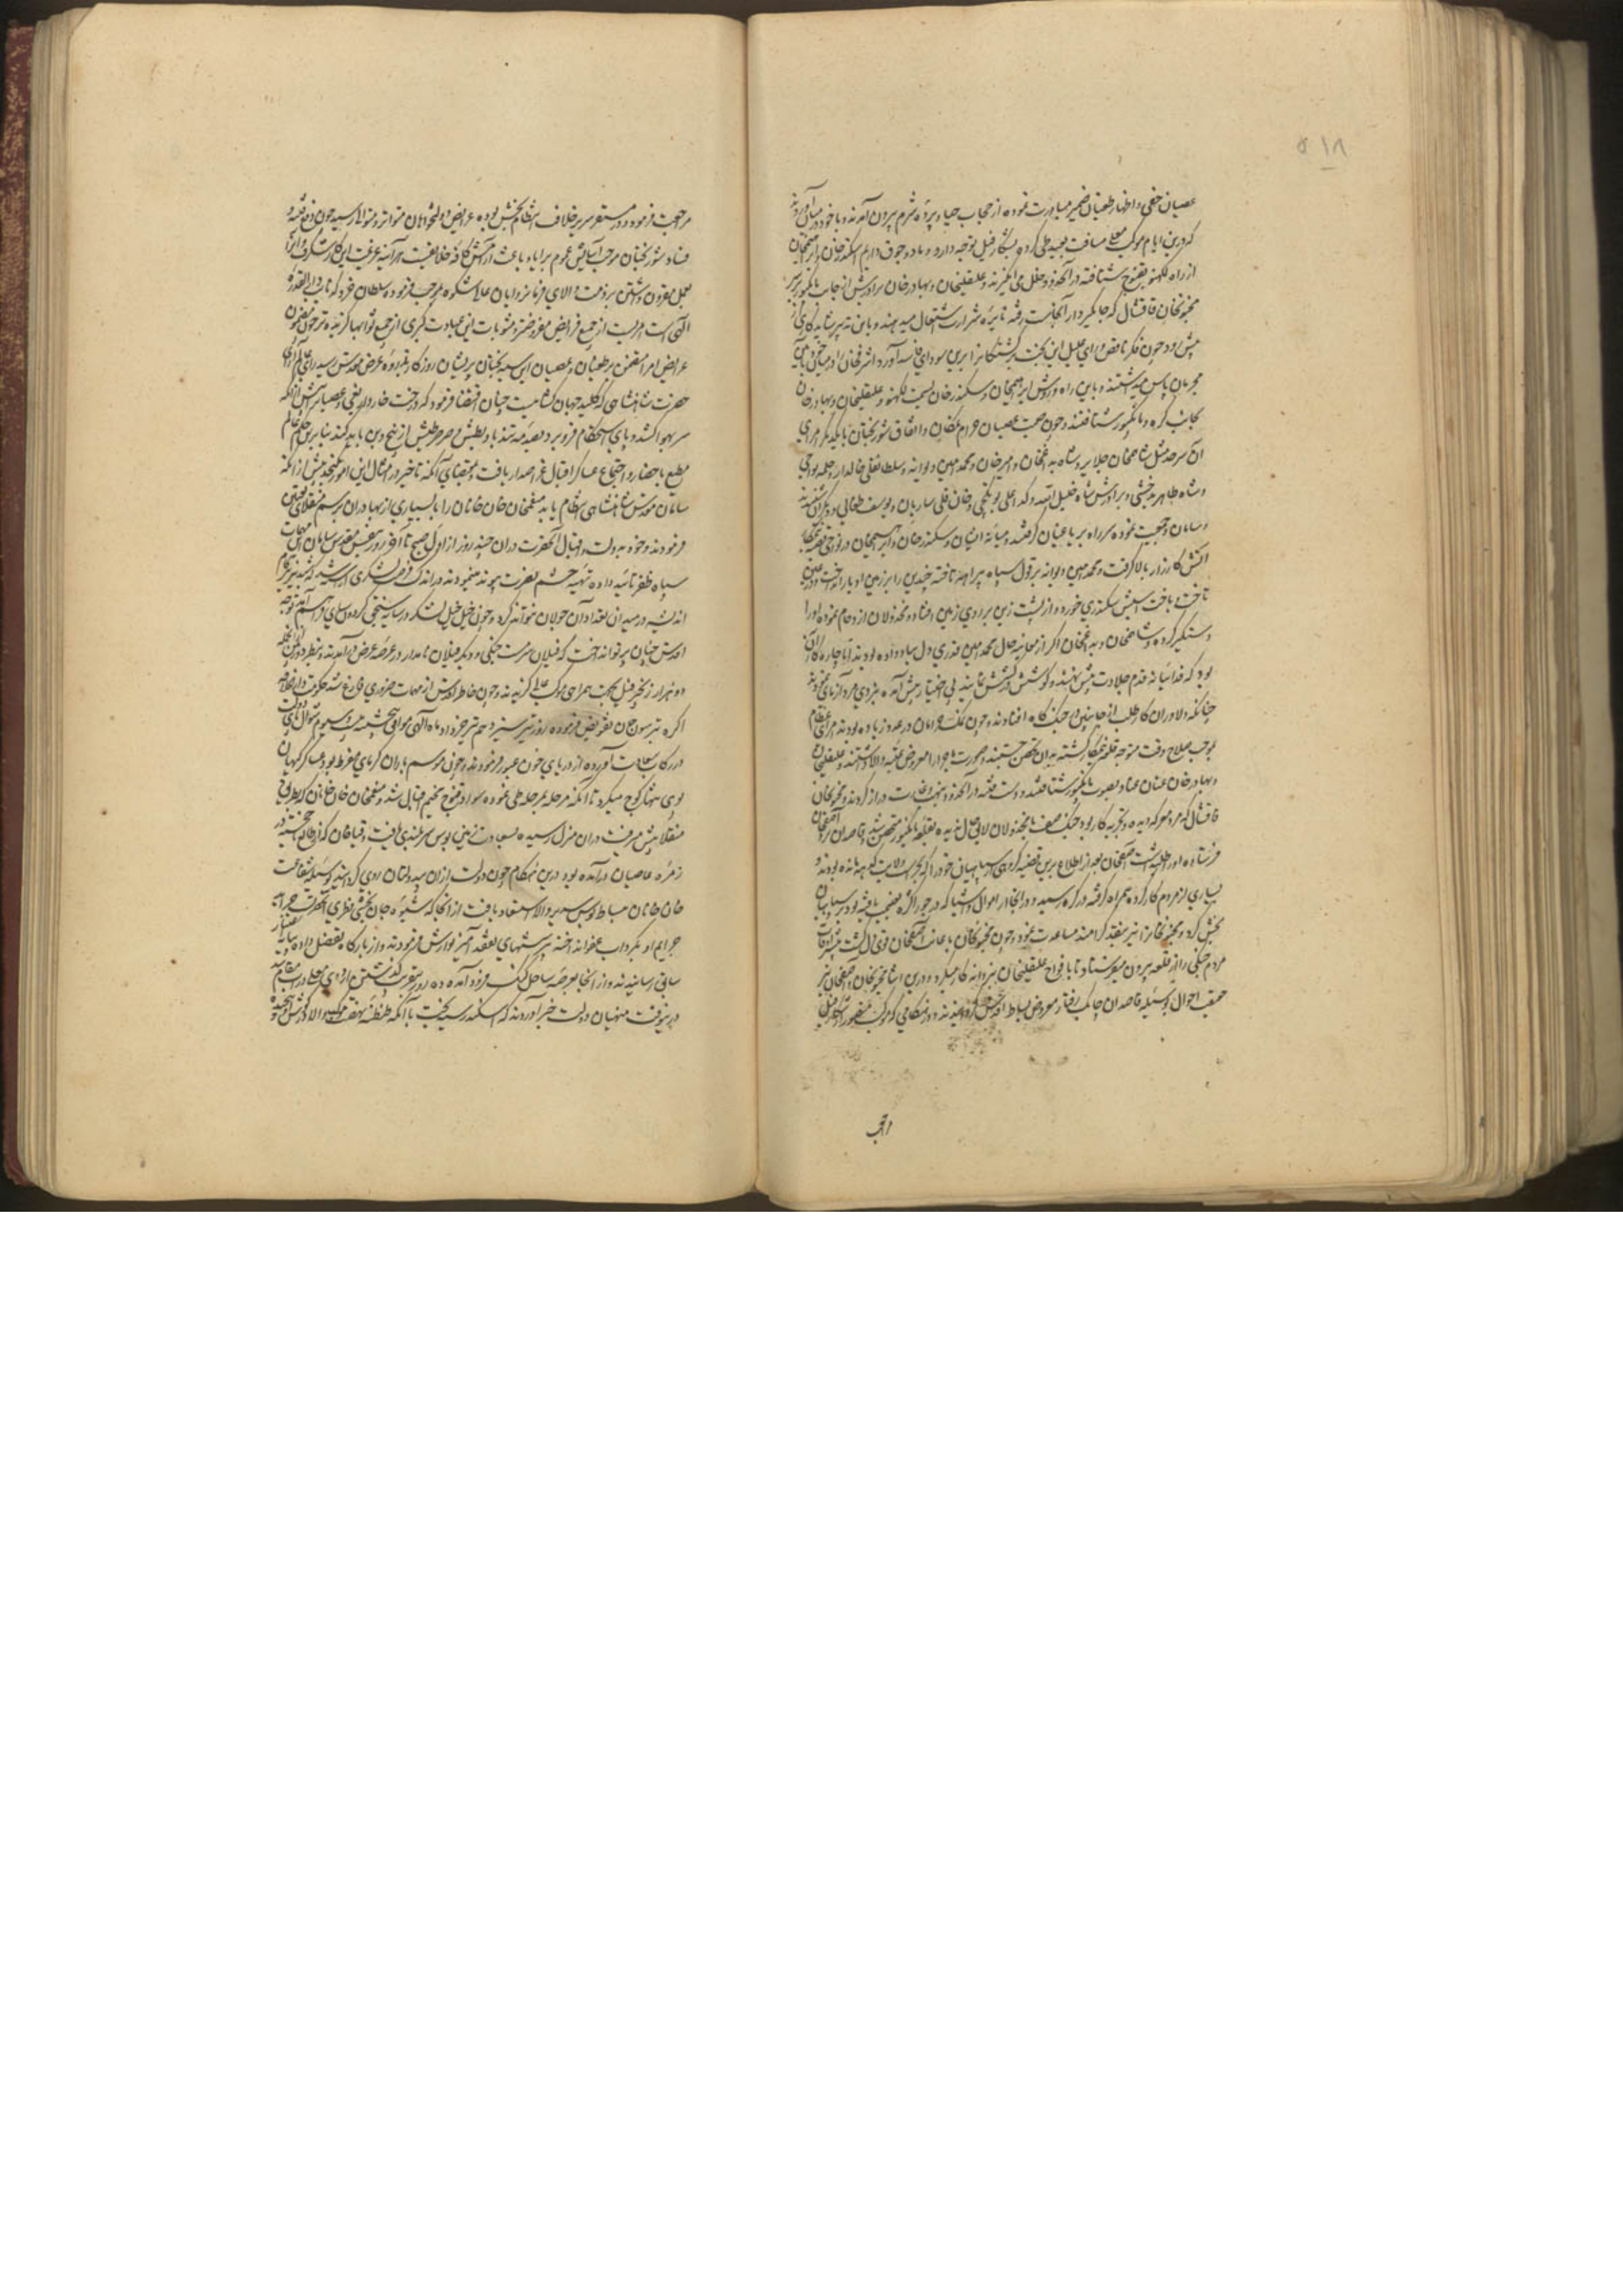 ۵۱۸
عصیان خفی و اظهار طغیان ضمیر مبادرت نموده از حجاب حیا و پرده شرم بیرون آمدند و با خود در میان آوردند
که درین ایام موکب معلی مسافت بعیده طی کرده بشکار فیل توجه دارد و ما دو جوق داریم اسکندرخان و ابراهیمخان
از راه لکهنو بقنوج شتافته در آنحدود خلل می انگیزند و علیقلیخان و بهادرخان برادرش از جانب مانکپور بر سر
مجنونخان قاقشال که جاگیردار آنجاست رفته نایره شرارت اشتعال میدهند و باین تدبیر شاید کاری از
پیش رود چون فکر ناقص و رای علیل این بخت برگشتگانرا برین سودای فاسد آورد اشرفخان را در
مجرمان پاس میداشتند و باین راه و روش ابراهیمخان و سکندرخان بسمت لکهنو و علیقلیخان و بهادرخان
بجانب کره و مانکپور شتافتند و چون صیت عصیان حرام نمکان و اتفاق شوربختان بایکدیگر امرای
آن سرحد مثل شاهمخان جلایر و شاه بداغخان و امیرخان و محمد امین دیوانه و سلطانقلی خالدار و جمله
و شاه طاهر بدخشی و برادرش شاه خلیل الله و کداعلی تولکچی و خان قلی ساربان و یوسف طغائی و دیگران شنیدند
و سامان جمعیت نموده سر راه بر باغیان گرفتند و میانه ایشان و سکندرخان و ابراهیمخان در نواحی قصبه نیمکار
آتش کارزار بالا گرفت و محمد امین دیوانه بر قول سپاه بیراهه تاخته چندین را بر زمین ادبار انداخت و درین
تاخت و بافت اسپش سکندری خورده و از پشت زین بر روی زمین افتاد و مخذولان ازدحام نموده او را
دستگیر کردند و شاهمخان و بداغخان اگر از معاینه حال محمد امین قدری دل بباد داده بودند اما چاره کار آن
بود که فدائیانه قدم جلادت پیش نهند و کوشش و کشش نمایند بی اختیار پیش آمده بنبردی مردآزمای
چنانکه دلاوران کارطلب از جانبین در جنگ گاه افتادند و چون نمک حرامان در عدد زیاده بودند امرای عظام
بموجب صلاح وقت متوجه قلعه نیمکار گشته بدان تحصن جستند و صورت ماجرا را معروض عتبه والا داشتند و علیقلیخان
و بهادرخان عنان عناد بصوب مانکپور شتافتند و دست فتنه در آنحدود بنهب و غارت دراز کردند و مجنونخان
قاقشال که مرد معرکه دیده و تجربه کار بود جنگ صف با مخذولان لایق حال ندیده بقلعه مانکپور متحصن شد و قاصدان نزد آصفخان
فرستاده او را طلب داشت آصفخان بعد از اطلاع برین قضیه گروهی از سپاهیان خود را که بحراست ولایت کدهه مانده بودند و
بسیاری از مردم کارکرده همراه گرفته در کره رسید و در آنجا از اموال و اشیا که در چوراگده بغنیمت یافته بود بر سپاهیان
بخش کرد و مجنونخانرا نیز بنقد گرامند مساعدت نمود و چون مجنونخان باعانت آصفخان قوی دل گشت
مردم جنگی را از قلعه بیرون میفرستاد تا با افواج علیقلیخان نبردانه کار میکرد و درین اثنا مجنونخان و آصفخان نیز
حقیقت احوال بوسیله قاصدان چابک رفتار معروض بساط اقدس گردانیدند و در هنگامی که موکب منصور از شکار فیل
مراجعت
مراجعت فرموده در مستقر سریر خلافت انتظام بخش بود عرایض دولتخواهان متواتر و متوالی رسید چون دفع فتنه و
فساد شوربختان موجب آسایش عموم برایا و باعث آرامش کافه خلایقست هرآینه عزیمت این کار شگرف را
بعمل مقرون داشتن بر ذمت والای فرمانروایان عالیشکوه بموجب فرموده سلطان خرد که نایب دار القدرة
الهی است اهم از جمیع فرایض مفروضه و مثوبات این عبادت کبری از جمیع ثوابها گزیده تر چون مضمون
عرایض امرا متضمن بر طغیان و عصیان این سیه بختان پریشان روزگار بذروه عرض مقدس رسید رای عالم آرای
حضرت شاهنشاهی که کلید جهان کشائیست چنان اقتضا فرمود که درخت خاردار بغی و عصیانرا پیش از آنکه
سر بهوا کشد و پای استحکام فرو برد بصدمه تندباد بطش و صرصر طیش از بیخ و بن باید کند بنابرین حکم عالم
مطیع باحضار و اجتماع عساکر اقبال عز اصدار یافت و بمقتضای آنکه تاخیر در امثال این امور نگنجد پیش از آنکه
سامان مورش شاهنشاهی انتظام یابد منعمخان خان خانانرا با بسیاری از بهادران برسم منقلای تعیین
فرمودند و خود بدولت و اقبال آنحضرت دران چند روز از اول صبح تا آخر روز بنفس مقدس سامان مهمات
سپاه ظفر تائید داده تهیه حشم نصرت پیوند مینمودند در اندک فرصت لشکری آراسته شد که شبدیز تیزگام
اندیشه در میدان تعداد آن جولان نتواند کرد و چون خیل خیل لشکر در سایه سنجق گردون سای فراهم آمد توجه
اقدس چنان پرتو انداخت که فیلان مست جنگی و دیگر فیلان نامدار در عرصه عرض درآمدند و بنظر دوربین
دو هزار زنجیر فیل بجهت همراهی موکب عالی گزیدند و چون خاطر اقدس از مهمات ضروری فارغ شد حکومت دارالخلافه
آگره بتربسون خان تفویض فرموده روز تیر سیزدهم تیر خرداد ماه الهی موافق پنجشنبه بیست و سیوم شوال پای دولت
در رکاب سعادت آورده از دریای جون عبور فرمودند و چون موسم باران گرمای مفرط بود عساکر گیهان
پوی شباگیر کوچ میکرد تا آنکه مرحله بمرحله طی نموده سواد قنوج مخیم اقبال شد و منعمخان خان خانان که بطریق
منقلا پیش میرفت دران منزل رسیده بسعادت زمین بوس سربلندی یافت و قیاخان که از طالع خفته در
زمره عاصیان درآمده بود درین هنگام چون دولت ازان بیدولتان روی گردانید بوسیله شفاعت
خان خانان ببساط بوس سریر والا استسعاد یافت از آنجا که شیوه جان بخشی فطری آنحضرتست جراید
جرایم او بگرداب عفو انداخته پرسشهای تفقدآمیز نوازش فرمودند و از بارگاه تفضل داده بپایه اعتبار
سابق رسانیدند و از آنجا بعرصه ساحل گنگ فرود آمده ده روز بتقریب گذشتن اردوی معلی دران مقام
درینوقت منهیان دولت خبر آوردند که سکندر سیه بخت باآنکه طنطنه نهضت موکب والا گوش